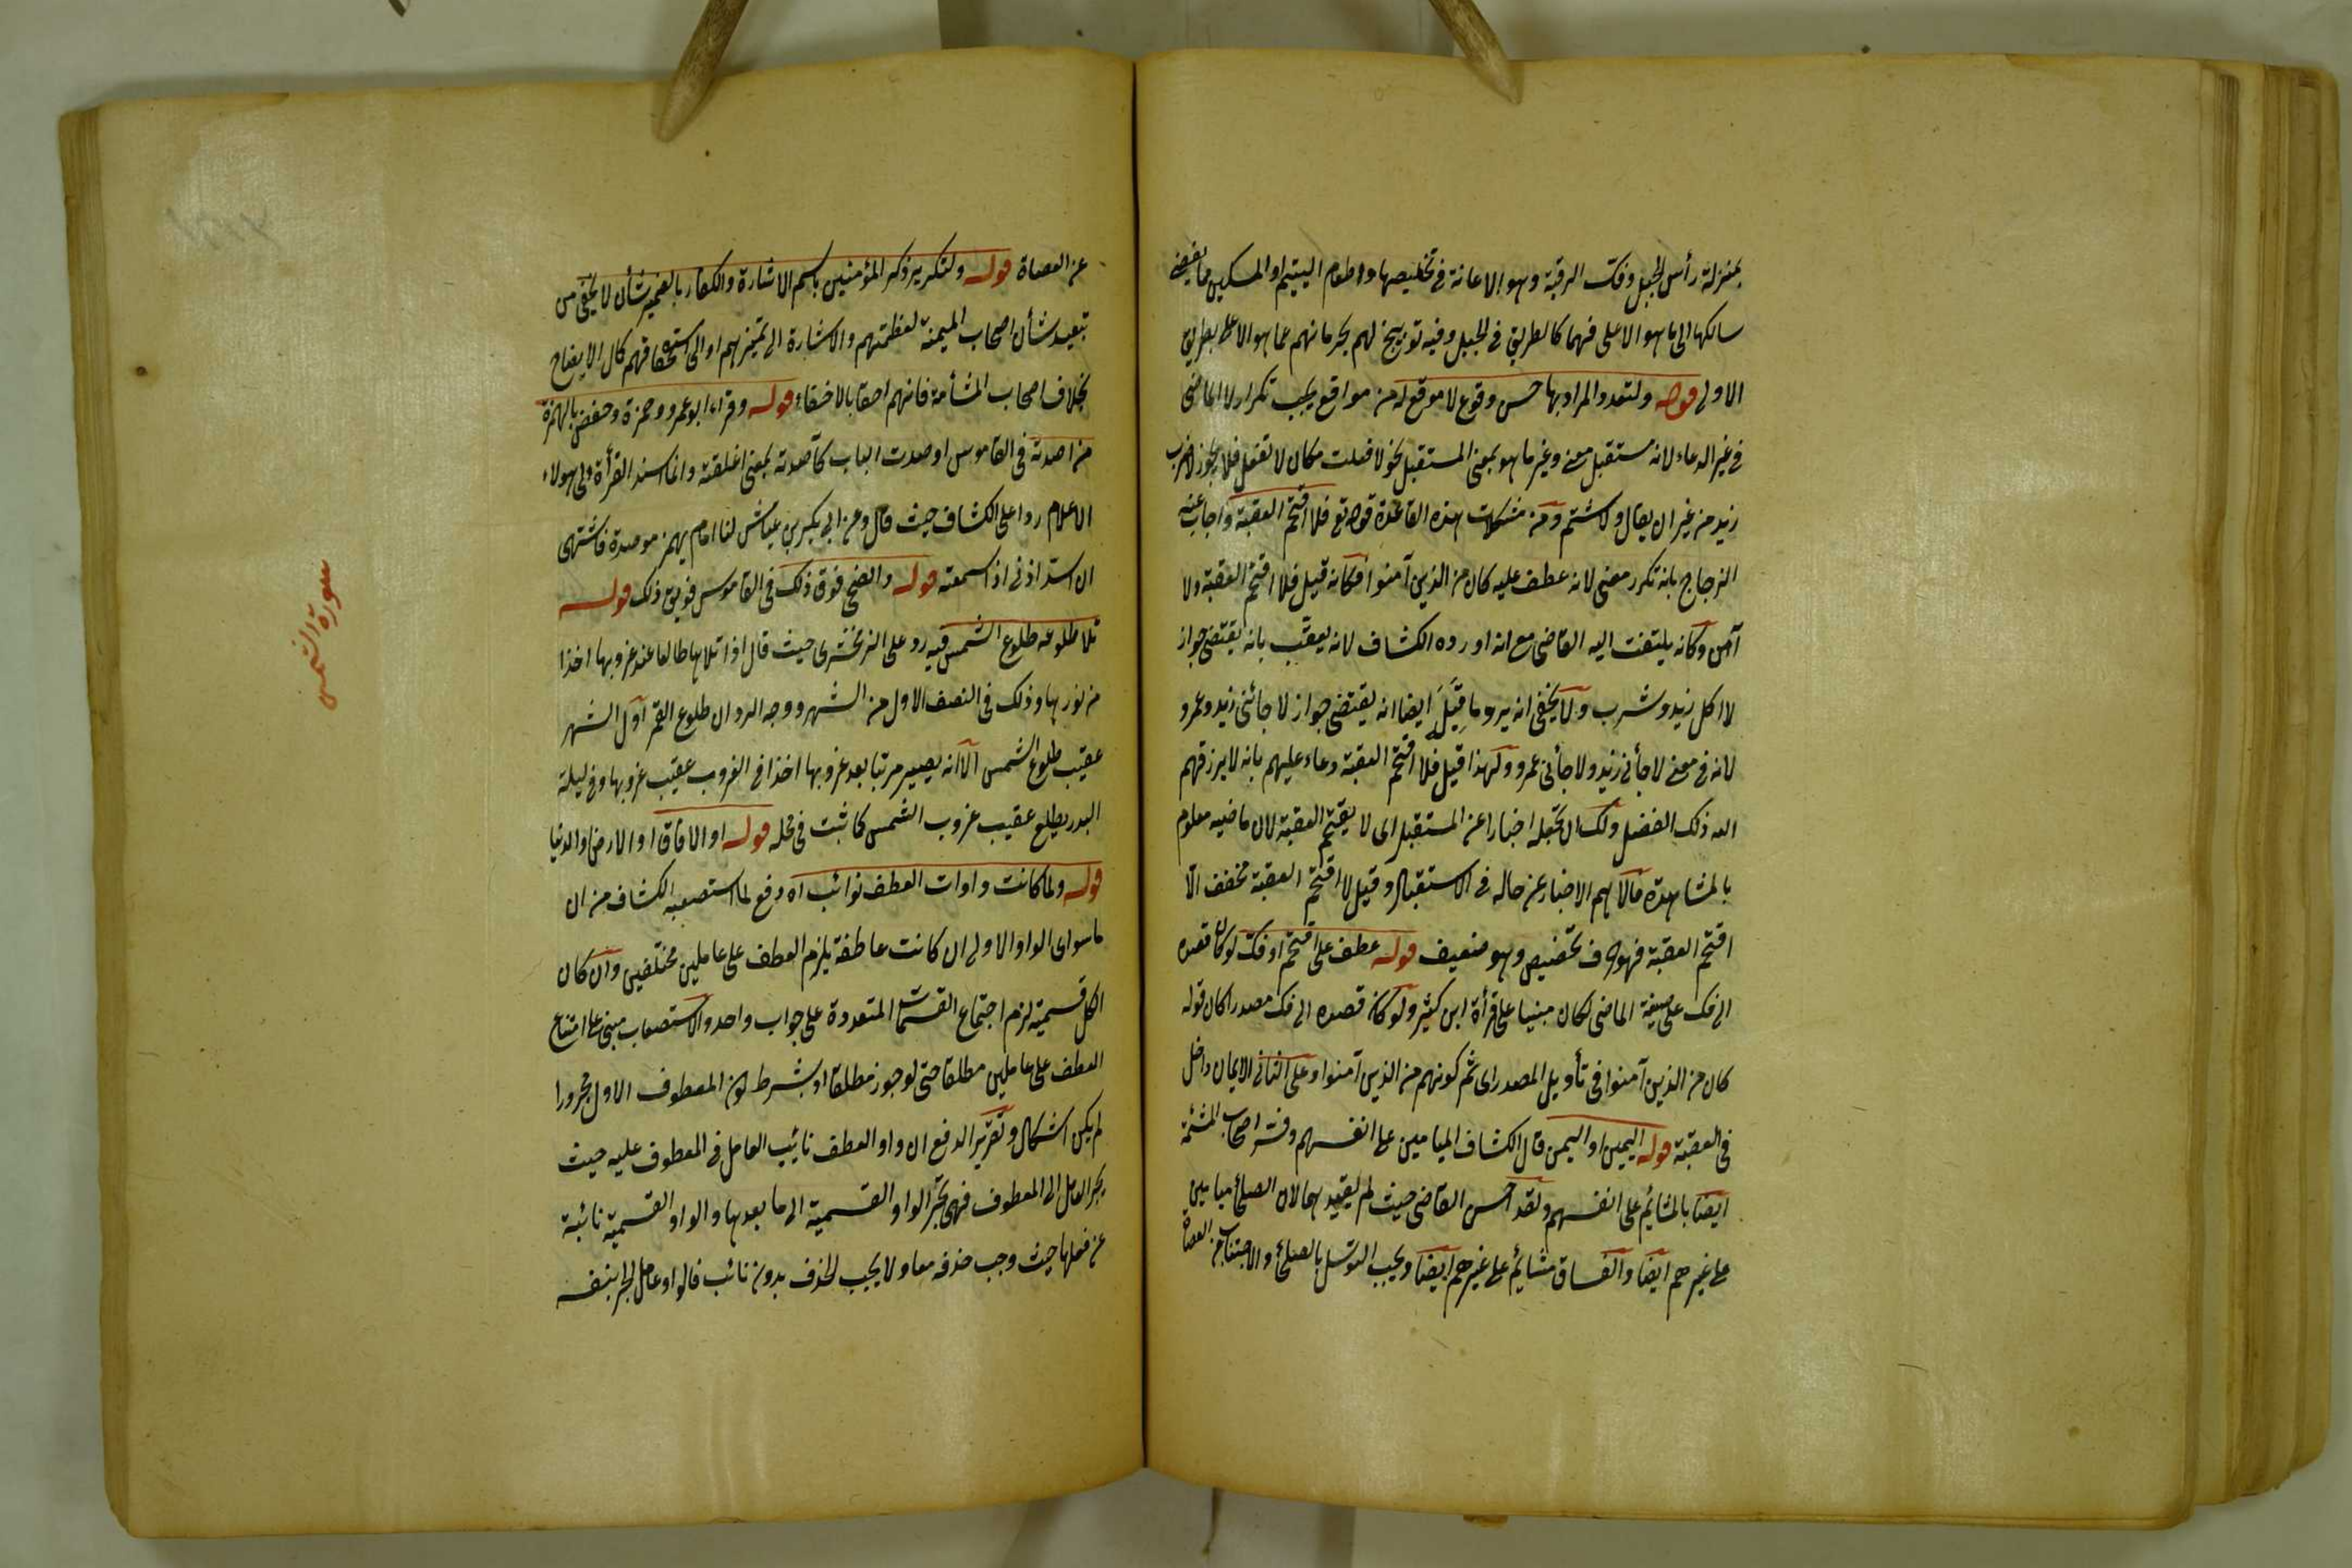 بمنزلة رأس الجبل وفك الرقبة وهو الاعانة في تخليصها واطعام اليتيم او المسكين مما يفضي
سالكها الى ما هو الاعلى فهما كالطريق في الجبل وفيه توبيخ لهم بحرمانهم عما هو الاعلى بطريق
الاولى قوله ولتعدد المراد بها حسن وقوع لا موقع لم من مواقع يجب تكرار لا الماضي
في غير الدعاء لانه مستقبل معنى وغير ما هو بمعنى المستقبل نحو لا فعلت مكان لا تفعل فلا يجوز لا ضرب
زيد من غير ان يقال ولا شتم ومن مشكلات هذه القاعدة قوله تع فلا اقتحم العقبة واجاب عنه
الزجاج بانه تكرر معنى لانه عطف عليه كان من الذين آمنوا فكانه قيل فلا اقتحم العقبة ولا
آمن وكانه يلتفت اليه القاضي مع انه اورده الكشاف لانه يعقب بانه يقتضي جواز
لا اكل زيد وشرب ولا يخفى انه يرد ما قيل ايضا انه يقتضي جواز لا جائني زيد وعمرو
لانه في معنى لا جأني زيد ولا جأني عمرو ولهذا قيل فلا اقتحم العقبة دعاء عليهم بانه لا يرزقهم
الله ذلك الفضل ولك ان تجعله اخبارا عن المستقبل اى لا يقتحم العقبة لان ماضيه معلوم
بالمشاهدة فالاهم الاخبار عن حاله في الاستقبال وقيل لا اقتحم العقبة مخفف الا
اقتحم العقبة فهو حرف تحضيض وهو ضعيف قوله عطف على اقتحم او فك لو كان قصده
الى فك على صيغة الماضي لكان مبنيا على قرأة ابن كثير ولو كان قصده الى فك مصدرا كان قوله
كان من الذين آمنوا في تأويل المصدر اى ثم كونهم من الذين آمنوا وعلى الثاني الايمان داخل
في العقبة قوله اليمين او اليمن قال الكشاف الميامين على انفسهم وفسر اصحاب المشئمة
ايضا بالمشائيم على انفسهم ولقد احسن القاضي حيث لم يقيد بهما لان الصلحأ ميامين
على غيرهم ايضا والفساق مشائيم على غيرهم ايضا ويجب التوسل بالصلحأ والاجتناب من العصاة
عن العصاة قوله ولتكرير ذكر المؤمنين باسم الاشارة والكفار بالضمير شأن لا يخفى من
تبعيد شأن اصحاب الميمنة لعظمتهم والاشارة الى تميزهم او الى استحقاقهم كمال الايضاح
بخلاف اصحاب المشأمة فانهم احقا بالاخفاء قوله وقراء ابو عمرو وحمزة وحفص بالهمزة
من اصدته في القاموس اوصدت الباب كآصدته بمعنى اغلقته وانما اسند القرأة الى هولاء
الاعلام ردا على الكشاف حيث قال وعن ابي بكير بن عياش لنا امام يهمز موصدة فاشتهى
ان اسد اذني اذا سمعته قوله والضحى فوق ذلك في القاموس فويق ذلك قوله
تلا طلوعه طلوع الشمس فيه رد على الزمخشرى حيث قال اذا تلاها طالعا عند غروبها اخذا
من نورها وذلك في النصف الاول من الشهر ووجه الرد ان طلوع القمر اول الشهر
عقيب طلوع الشمس الا انه يصير مرتبا بعد غروبها اخذا في الغروب عقيب غروبها وفي ليلة
البدر يطلع عقيب غروب الشمس كما ثبت في محله قوله او الافاق او الارض او الدنيا
قوله ولما كانت واوات العطف نوائب اه دفع لما استصعبه الكشاف من ان
ما سوى الواو الاولى ان كانت عاطفة يلزم العطف على عاملين مختلفين وان كان
الكل قسمية لزم اجتماع القسمات المتعددة على جواب واحد والاستصعاب مبنى على امتناع
العطف على عاملين مطلقا حتى لو جوز مطلقا او بشرط كون المعطوف الاول مجرورا
لم يكن اشكال وتقرير الدفع ان واو العطف نائيب العامل في المعطوف عليه حيث
يجر العامل الى المعطوف فهى تجر الواو القسمية الى ما بعدها والواو القسمية نائبة
عن فعلها حيث وجب حذفه معا ولا يجب الحذف بدون نائب فالواو عامل الجر بنفسه
سورة الشمس